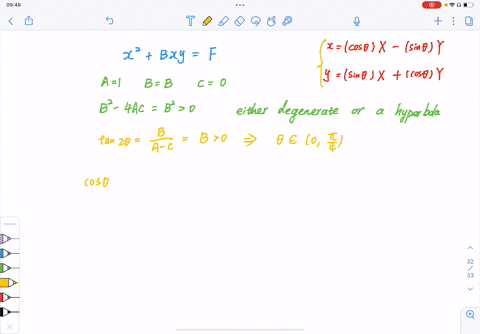 09:48
x² + Bxy = F
x = (cosθ) X − (sinθ) Y
y = (sinθ) X + (cosθ) Y
A=1 B=B C=0
B²−4AC = B² > 0 either degenerate or a hyperbola
tan 2θ = B/(A−C) = B > 0 ⇒ θ ∈ (0, π/4)
cosθ
32
/
33